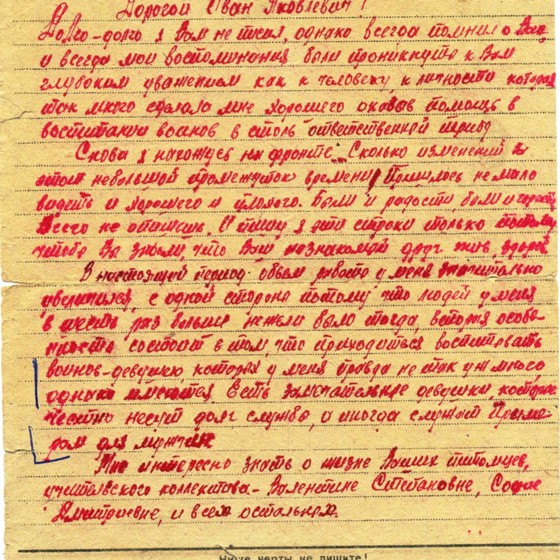 Дорогой Иван Яковлевич!
Долго-долго я Вам не писал, однако всегда помнил о Вас
и всегда мои воспоминания были проникнуты к Вам
глубоким уважением как к человеку, к личности которая
так много сделала мне хорошего оказав помощь в
воспитании воинов в столь ответственный период.
Снова я нахожусь на фронте. Сколько изменений в
этот небольшой промежуток времени! Пришлось не мало
видеть и хорошего и плохого. Были и радости, были и
Всего не опишешь. И пишу я эти строки только потому
чтобы Вы знали, что Ваш незнакомый друг жив, здоров.
В настоящий период объем работы у меня значительно
увеличился, с одной стороны потому что людей у меня
в шесть раз больше нежели было тогда, вторая особе-
нность состоит в том, что приходиться воспитывать
воинов-девушек которых у меня правда не так уж много
однако имеются. Есть замечательные девушки, которые
честно несут долг службы, а иногда служат Приме-
ром для мужчин.
Мне интересно знать о жизни Ваших питомцев,
учительского коллектива - Валентине Степановне, Софье
Дмитриевне, и всех остальных.
Ниже черты не пишите!